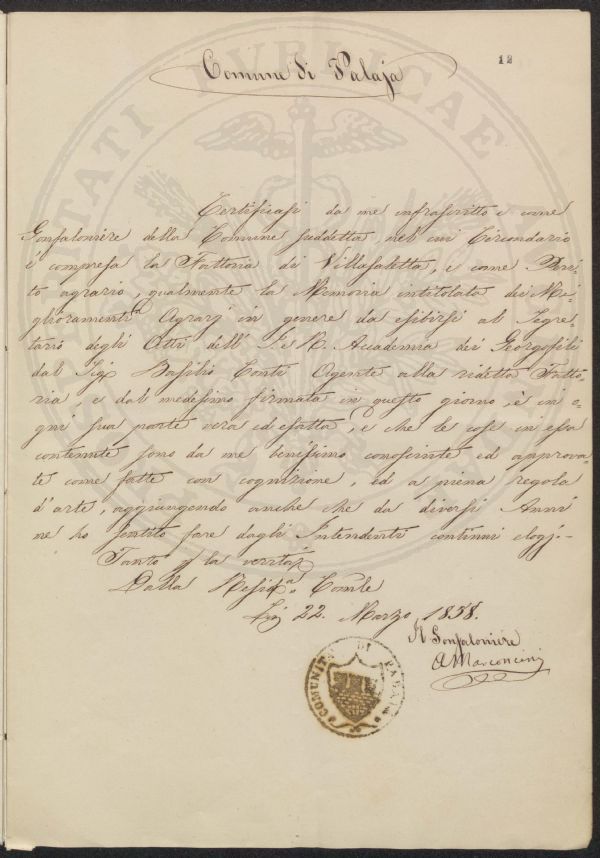 12
Comune di Palaja
Certificasi da me infrascritto e come
Gonfaloniere della Comune suddetta, nel cui Circondario
è compresa la Fattoria di Villasaletta, e come Peri-
to agrario, qualmente la Memoria intitolata dei Mi-
glioramenti Agrarj in genere da esibirsi al Segre-
tario degli Atti dell' I. e R. Accademia dei Georgofili
dal Sig. Basilio Conti Agente alla ridetta Fatto-
ria, e dal medesimo firmata in questo giorno, è in o-
gni sua parte vera ed esatta, e che le cose in essa
contenute sono da me benissimo conosciute ed approva-
te come fatte con cognizione, ed a piena regola
d'arte, aggiungendo anche che da diversi Anni
ne ho sentito fare dagli Intendenti continui elogj.-
Tanto p la verità
Dalla Resid.a Com.le
Li 22. Marzo 1858.
Il Gonfaloniere
A Marconcini
COMUNITÀ DI PALAJA